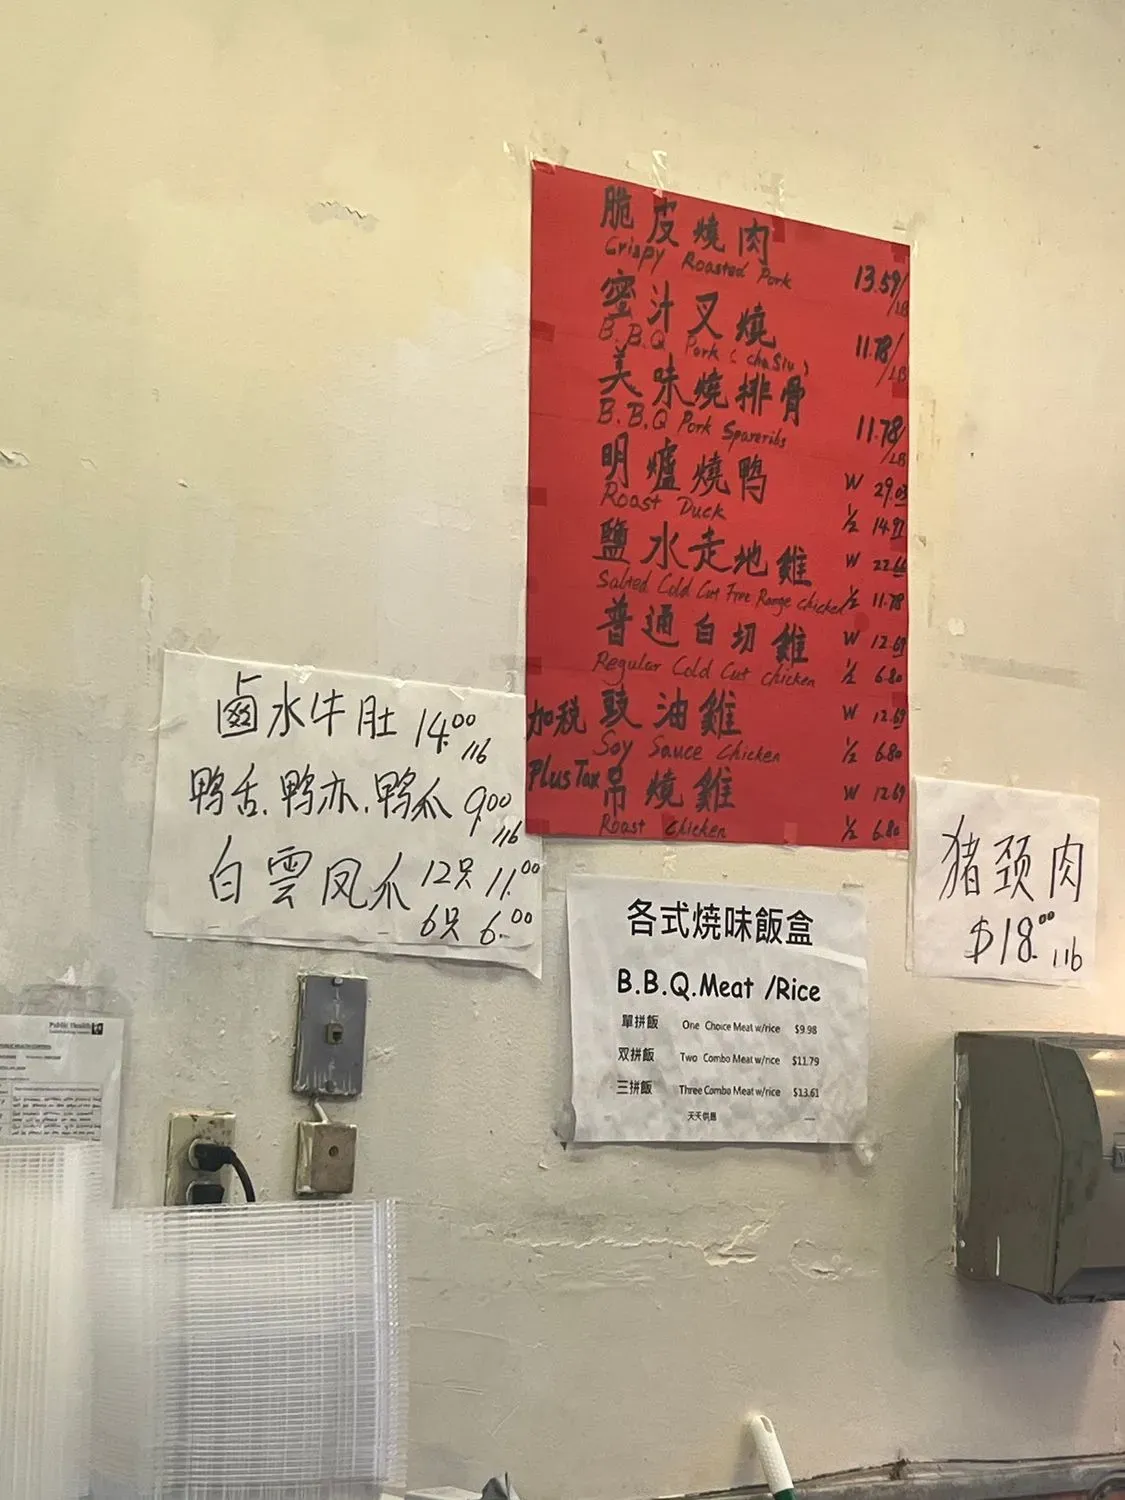 脆皮燒肉
Crispy Roasted Pork 13.59/LB
密汁叉燒
B.B.Q Pork (chaSiu) 11.78/LB
美味燒排骨
B.B.Q Pork Spareribs 11.78/LB
明爐燒鸭 W 29.03
Roast Duck ½ 14.97
鹽水走地雞 W 22.66
Salted Cold Cut Free Range chicken ½ 11.78
普通白切雞 W 12.69
Regular Cold Cut chicken ½ 6.80
加税 豉油雞 W 12.69
Soy Sauce chicken ½ 6.80
Plus Tax 吊燒雞 W 12.69
Roast chicken ½ 6.80
鹵水牛肚 14.00 1lb
鸭舌.鸭亦.鸭爪 9.00 1lb
白雲凤爪 12只 11.00
6只 6.00
猪颈肉
$18.00 1lb
各式燒味飯盒
B.B.Q.Meat /Rice
單拼飯 One Choice Meat w/rice $9.98
双拼飯 Two Combo Meat w/rice $11.79
三拼飯 Three Combo Meat w/rice $13.61
天天供應
Public Health